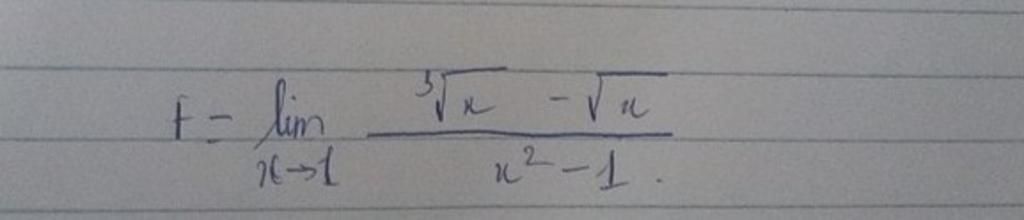 F = lim x→1 (∛x - √x) / (x² - 1).